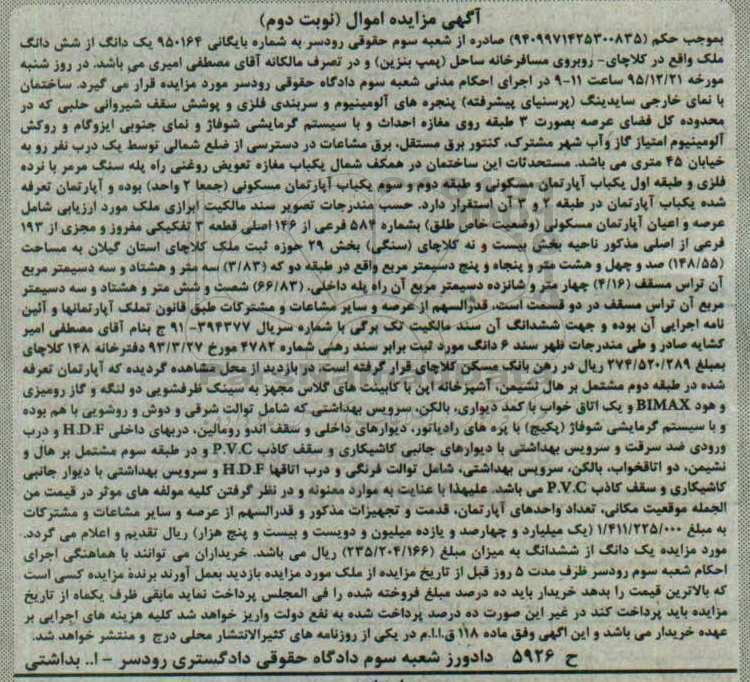 آگهی مزایده اموال (نوبت دوم)
بموجب حکم (۹۴۰۹۹۷۱۴۲۵۳۰۰۸۳۵) صادره از شعبه سوم حقوقی رودسر به شماره بایگانی ۹۵۰۱۶۴ یک دانگ از شش دانگ
ملک واقع در کلاچای- روبروی مسافرخانه ساحل (پمپ بنزین) و در تصرف مالکانه آقای مصطفی امیری می باشد. در روز شنبه
مورخه ۹۵/۱۲/۲۱ ساعت ۱۱-۹ در اجرای احکام مدنی شعبه سوم دادگاه حقوقی رودسر مورد مزایده قرار می گیرد. ساختمان
با نمای خارجی سایدینگ (پرسنیای پیشرفته) پنجره های آلومینیوم و سربندی فلزی و پوشش سقف شیروانی حلبی که در
محدوده کل فضای عرصه بصورت ۳ طبقه روی مغازه احداث و با سیستم گرمایشی شوفاژ و نمای جنوبی ایزوگام و روکش
آلومینیوم امتیاز گاز وآب شهر مشترک، کنتور برق مستقل، برق مشاعات در دسترسی از ضلع شمالی توسط یک درب نفر رو به
خیابان ۴۵ متری می باشد. مستحدثات این ساختمان در همکف شمال یکباب مغازه تعویض روغنی راه پله سنگ مرمر با نرده
فلزی و طبقه اول یکباب آپارتمان مسکونی و طبقه دوم و سوم یکباب آپارتمان مسکونی (جمعا ۲ واحد) بوده و آپارتمان تعرفه
شده یکباب آپارتمان در طبقه ۲ و ۳ آن استقرار دارد. حسب مندرجات تصویر سند مالکیت ابرازی ملک مورد ارزیابی شامل
عرصه و اعیان آپارتمان مسکونی (وضعیت خاص طلق) بشماره ۵۸۲ فرعی از ۱۴۶ اصلی قطعه ۳ تفکیکی مفروز و مجزی از ۱۹۳
فرعی از اصلی مذکور ناحیه بخش بیست و نه کلاچای (سنگی) بخش ۲۹ حوزه ثبت ملک کلاچای استان گیلان به مساحت
(۱۴۸/۵۵) صد و چهل و هشت متر و پنجاه و پنج دسیمتر مربع واقع در طبقه دو که (۳/۸۳) سه متر و هشتاد و سه دسیمتر مربع
آن تراس مسقف (۴/۱۶) چهار متر و شانزده دسیمتر مربع آن راه پله داخلی. (۶۶/۸۳) شصت و شش متر و هشتاد و سه دسیمتر
مربع آن تراس مسقف در دو قسمت است، قدرالسهم از عرصه و سایر مشاعات و مشترکات طبق قانون تملک آپارتمانها و آئین
نامه اجرایی آن بوده و جهت ششدانگ آن سند مالکیت تک برگی با شماره سریال ۳۹۴۳۷۷- ۹۱ ج بنام آقای مصطفی امیر
کشایه صادر و طی مندرجات ظهر سند ۶ دانگ مورد ثبت برابر سند رهنی شماره ۴۷۸۲ مورخ ۹۳/۳/۲۷ دفترخانه ۱۴۸ کلاچای
بمبلغ ۲۷۴/۵۲۰/۲۸۹ ریال در رهن بانک مسکن کلاچای قرار گرفته است. در بازدید از محل مشاهده گردیده که آپارتمان تعرفه
شده در طبقه دوم مشتمل بر هال نشیمن، آشپزخانه اپن با کابینت های گلاس مجهز به سینک ظرفشویی دو لنگه و گاز رومیزی
و هود BIMAX و یک اتاق خواب با کمد دیواری، بالکن، سرویس بهداشتی که شامل توالت شرقی و دوش و روشویی با هم بوده
و با سیستم گرمایشی شوفاژ (پکیج) با پره های رادیاتور، دیوارهای داخلی و سقف اندو رومالین، دربهای داخلی H.D.F و درب
ورودی ضد سرقت و سرویس بهداشتی با دیوارهای جانبی کاشیکاری و سقف کاذب P.V.C و در طبقه سوم مشتمل بر هال و
نشیمن، دو اتاقخواب، بالکن، سرویس بهداشتی، شامل توالت فرنگی و درب اتاقها H.D.F و سرویس بهداشتی با دیوار جانبی
کاشیکاری و سقف کاذب P.V.C می باشد. علیهذا با عنایت به موارد معنونه و در نظر گرفتن کلیه مولفه های موثر در قیمت من
الجمله موقعیت مکانی، تعداد واحدهای آپارتمان، قدمت و تجهیزات مذکور و قدرالسهم از عرصه و سایر مشاعات و مشترکات
به مبلغ ۱/۴۱۱/۲۲۵/۰۰۰ (یک میلیارد و چهارصد و یازده میلیون و دویست و بیست و پنج هزار) ریال تقدیم و اعلام می گردد.
مورد مزایده یک دانگ از ششدانگ به میزان مبلغ (۲۳۵/۲۰۴/۱۶۶) ریال می باشد. خریداران می توانند با هماهنگی اجرای
احکام شعبه سوم رودسر ظرف مدت ۵ روز قبل از تاریخ مزایده از ملک مورد مزایده بازدید بعمل آورند برنده مزایده کسی است
که بالاترین قیمت را بدهد خریدار باید ده درصد مبلغ فروخته شده را فی المجلس پرداخت نماید مابقی ظرف یکماه از تاریخ
مزایده باید پرداخت کند در غیر این صورت ده درصد پرداخت شده به نفع دولت واریز خواهد شد کلیه هزینه های اجرایی بر
عهده خریدار می باشد و این آگهی وفق ماده ۱۱۸ ق.ا.ا.م در یکی از روزنامه های کثیرالانتشار محلی درج و منتشر خواهد شد.
ح ۵۹۲۶ دادورز شعبه سوم دادگاه حقوقی دادگستری رودسر - ا.. بداشتی